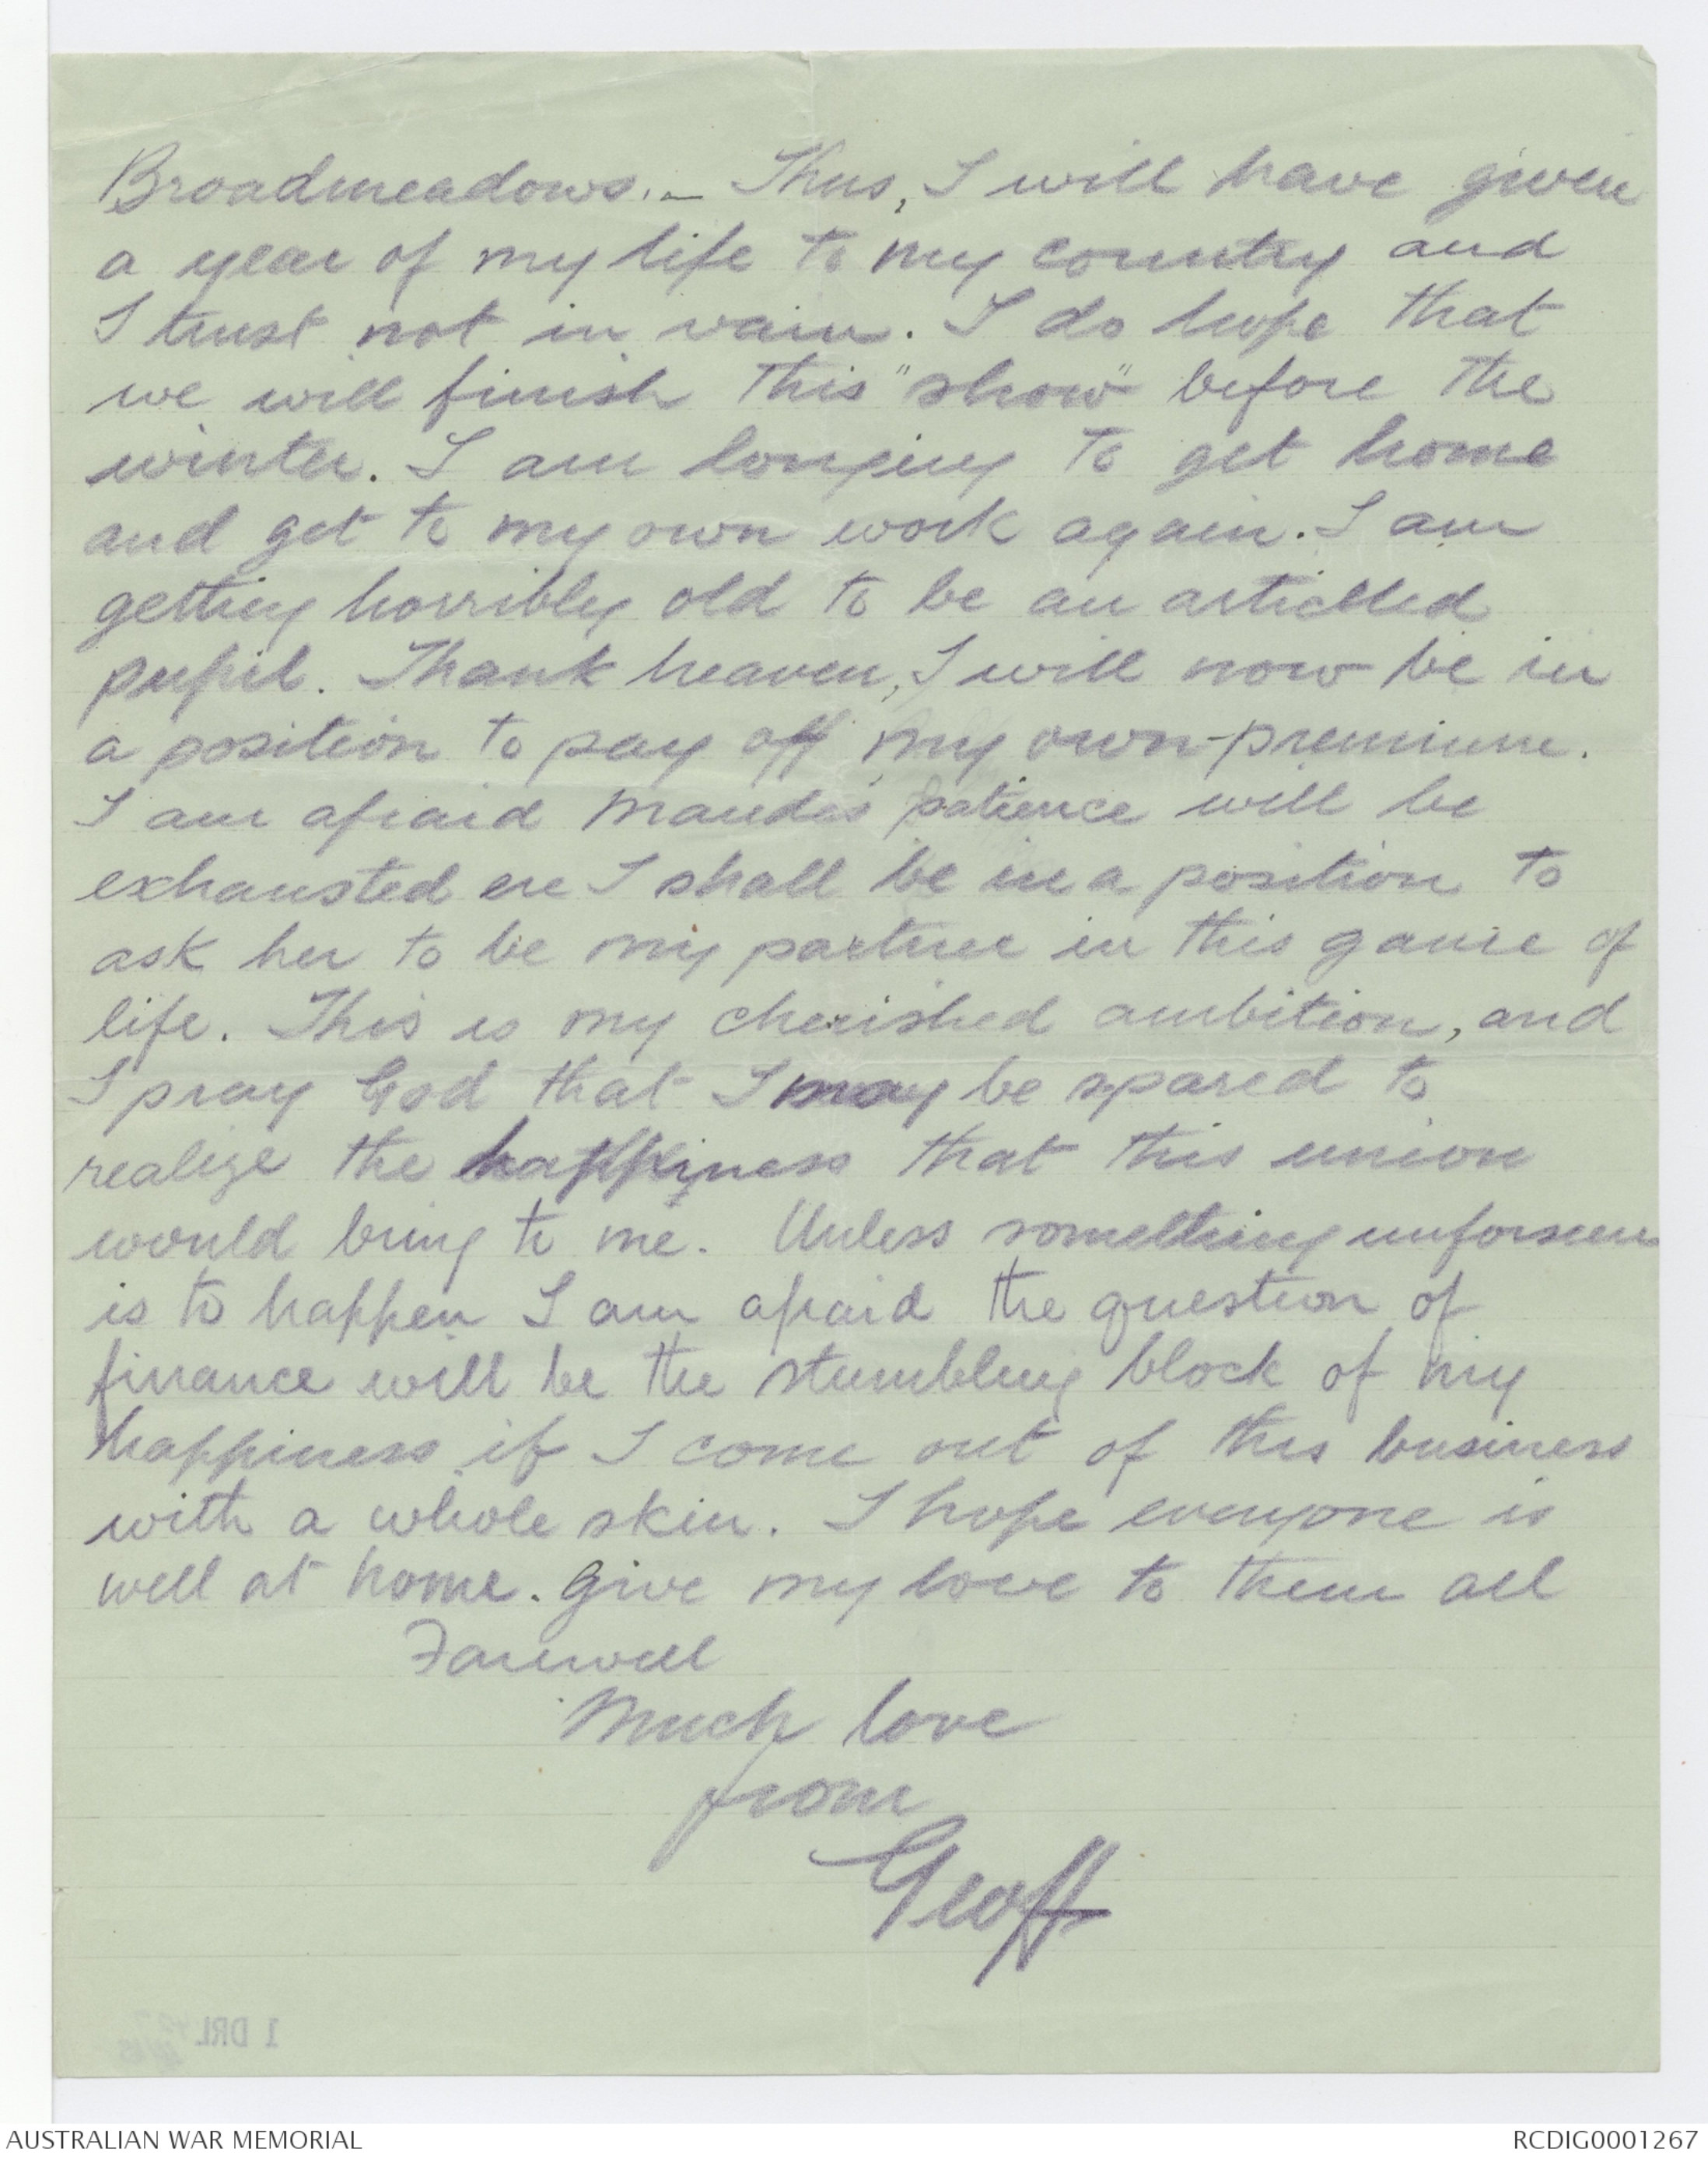 Broadmeadows. _ Thus, I will have given
a year of my life to my country and
I trust not in vain. I do hope that
we will finish this "show" before the
winter. I am longing to get home
and get to my own work again. I am
getting horribly old to be an articlled
pupil. Thank heaven, I will now be in
a position to pay off my own premium.
I am afraid Maude's patience will be
exhausted ere I shall be in a position to
ask her to be my partner in this game of
life. This is my cherished ambition, and
I pray God that I may be spared to
realize the happiness that this union
would bring to me. Unless something unforseen
is to happen I am afraid the question of
finance will be the stumbling block of my
happiness if I come out of this business
with a whole skin. I hope everyone is
well at home. Give my love to them all
Farewell
Much love
from
Geoff
1 DRL
AUSTRALIAN WAR MEMORIAL
RCDIG0001267